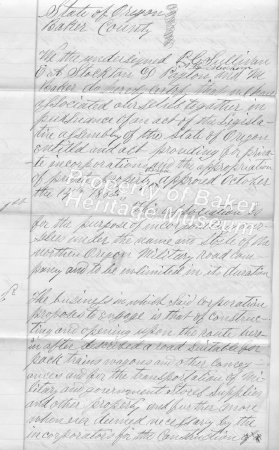 State of Oregon
Baker County
We the undersigned P. G. Sullivan
Stockton Payton, and Wm
Baker do hereby certify that we have
associated ourselves together in
pursuance of an act of the Legisla-
tive assembly of the State of Oregon
entitled an act providing for priva-
te incorporations and the appropriation
of private property approved October
the
1st
for the purpose of
under the name and style of the
Northern Oregon Military road Com-
pany and to be unlimited in its duration
2d
The business in which said corporation
proposes to engage is that of construc-
ting and opening upon the route here
in after described a road suitable for
pack trains wagons and other convey-
ances and for the transportation of Mi-
litary and government Stores Supplies
and other property and further more
when ever deemed necessary by the
incorporators for the construction of a
Property of Baker
Heritage Museum